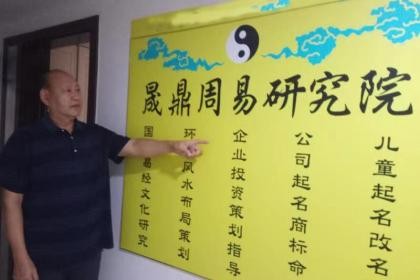 晟鼎周易研究院
儿童起名改名
公司起名商标命
企业投资策划指导
环 风水布局策划
国 易经文化研究